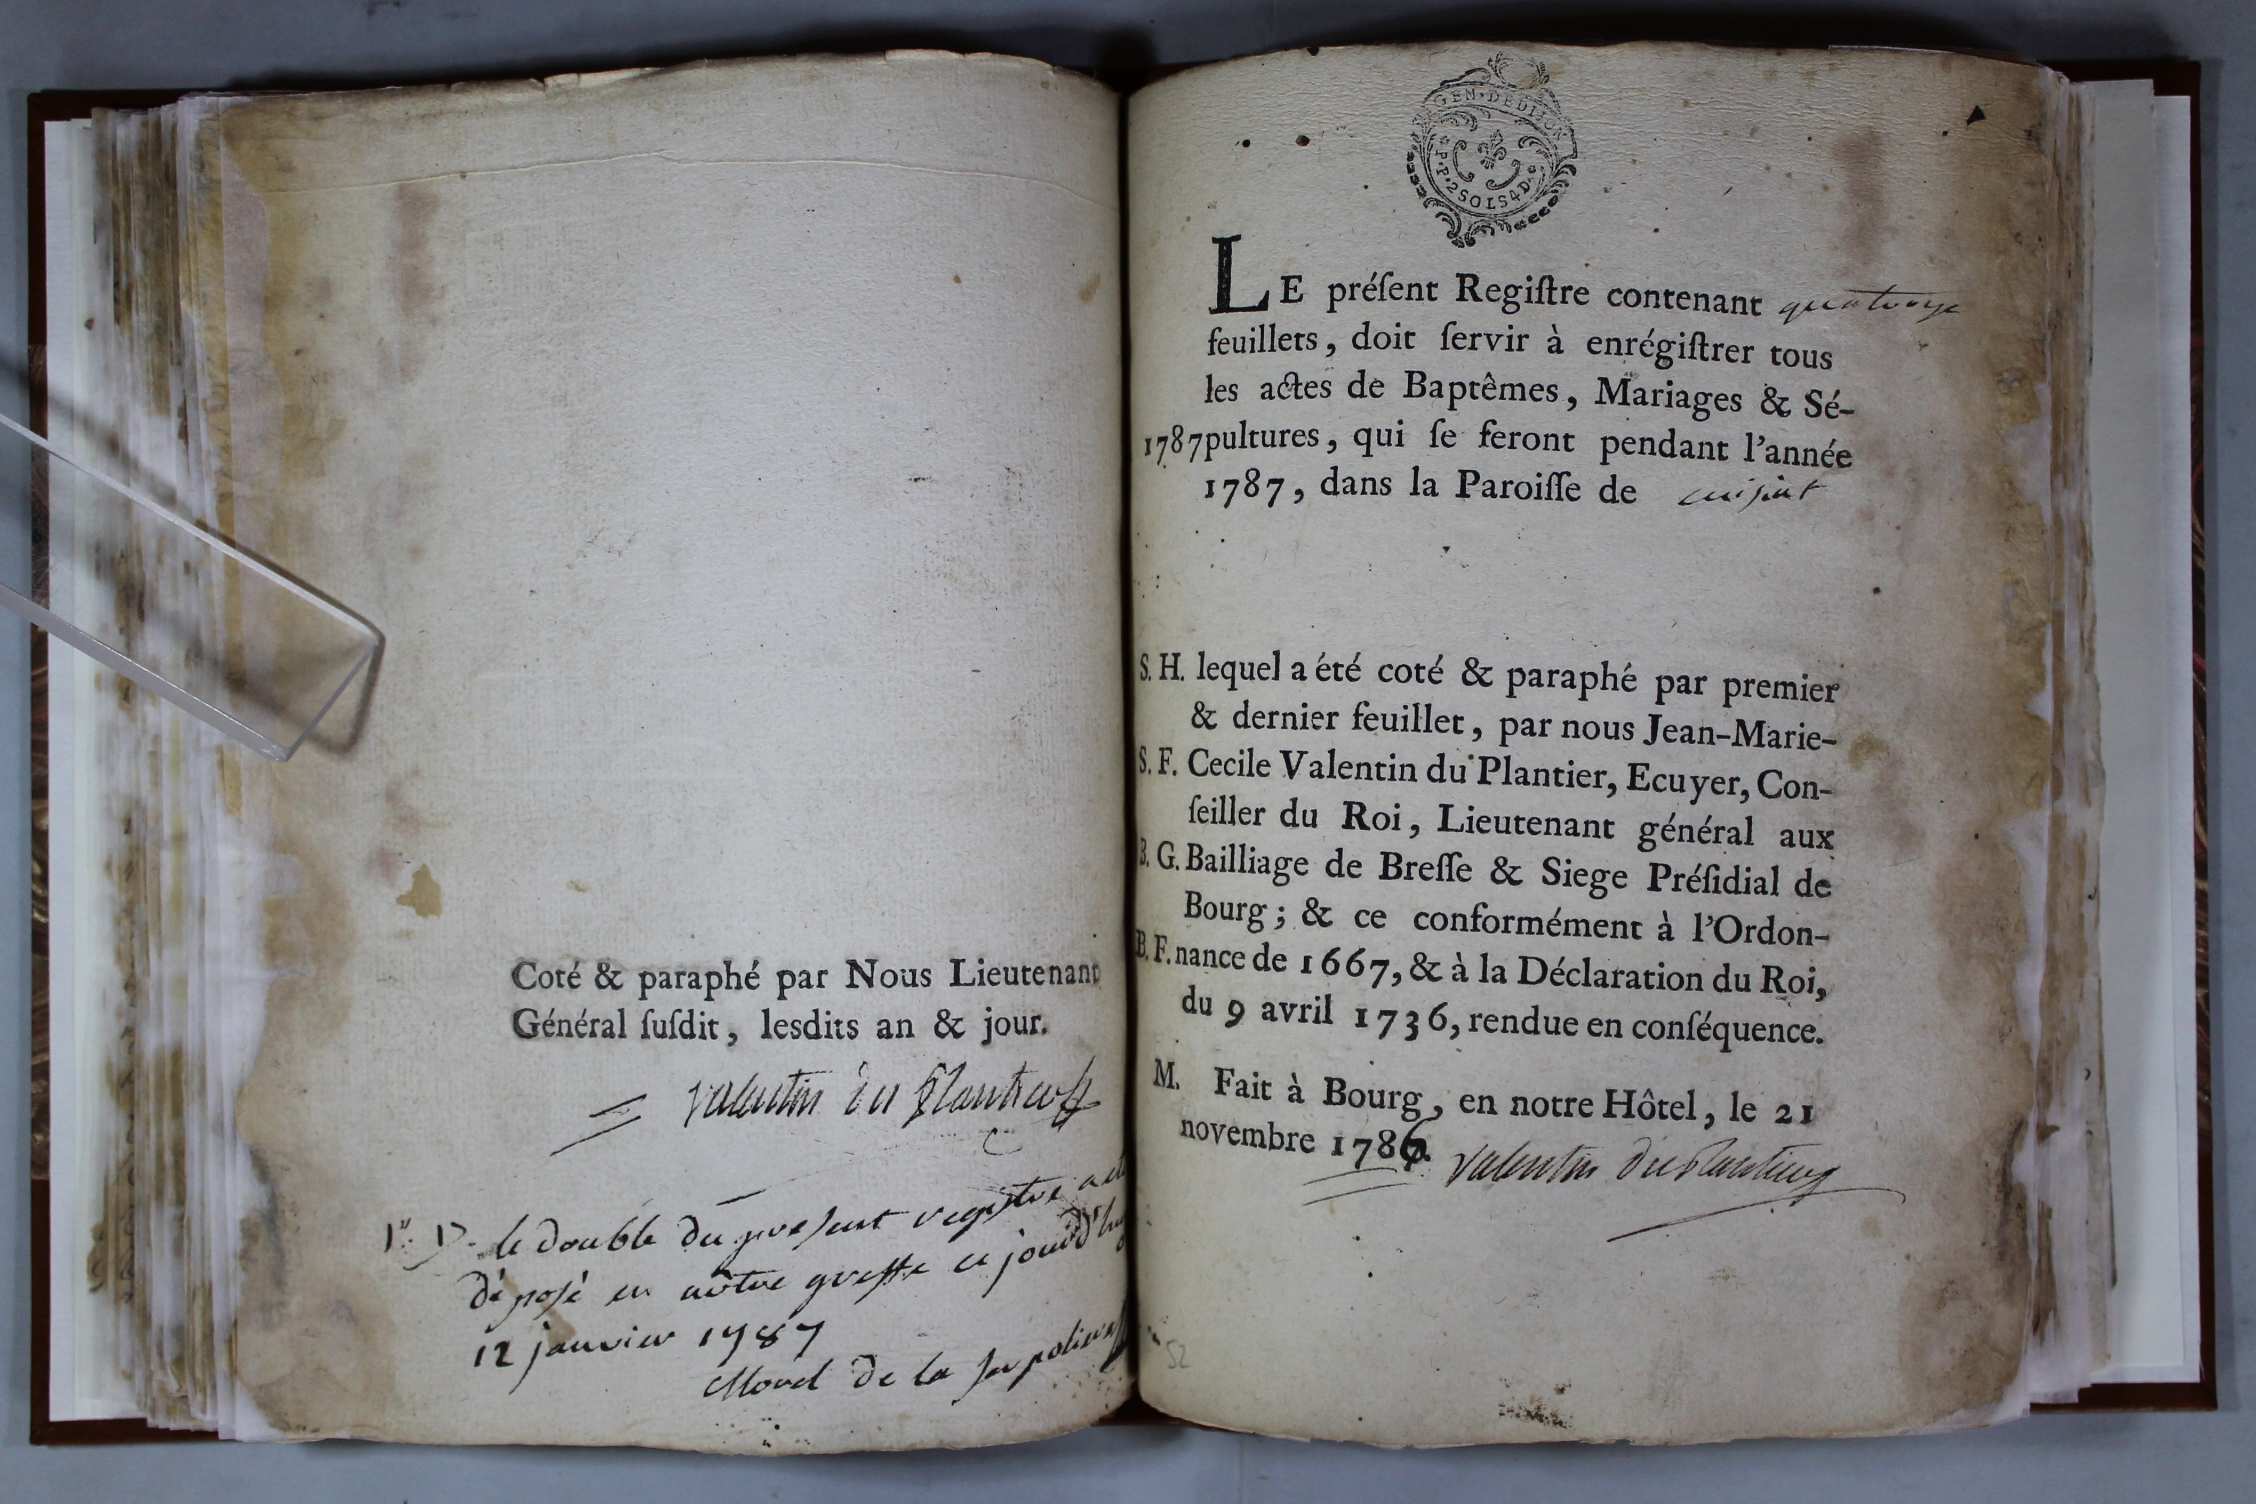 Coté & paraphé par Nous Lieutenant
Général ſuſdit, lesdits an & jour.
Valentin du Plantier
le double du present registre a été
déposé en nôtre greffe ce jourd'hui
12 janvier 1787
Morel de la
GEN. DE DIJON
P.P. 2 SOLS 4 D.
LE préſent Regiſtre contenant quatorze
feuillets, doit ſervir à enrégiſtrer tous
les actes de Baptêmes, Mariages & Sé-
1787 pultures, qui ſe feront pendant l'année
1787, dans la Paroiſſe de cuisiat
S. H. lequel a été coté & paraphé par premier
& dernier feuillet, par nous Jean-Marie-
S. F. Cecile Valentin du Plantier, Ecuyer, Con-
ſeiller du Roi, Lieutenant général aux
B. G. Bailliage de Breſſe & Siege Préſidial de
Bourg; & ce conformément à l'Ordon-
B. F. nance de 1667, & à la Déclaration du Roi,
du 9 avril 1736, rendue en conſéquence.
M. Fait à Bourg, en notre Hôtel, le 21
novembre 1786.
Valentin du Plantier
52